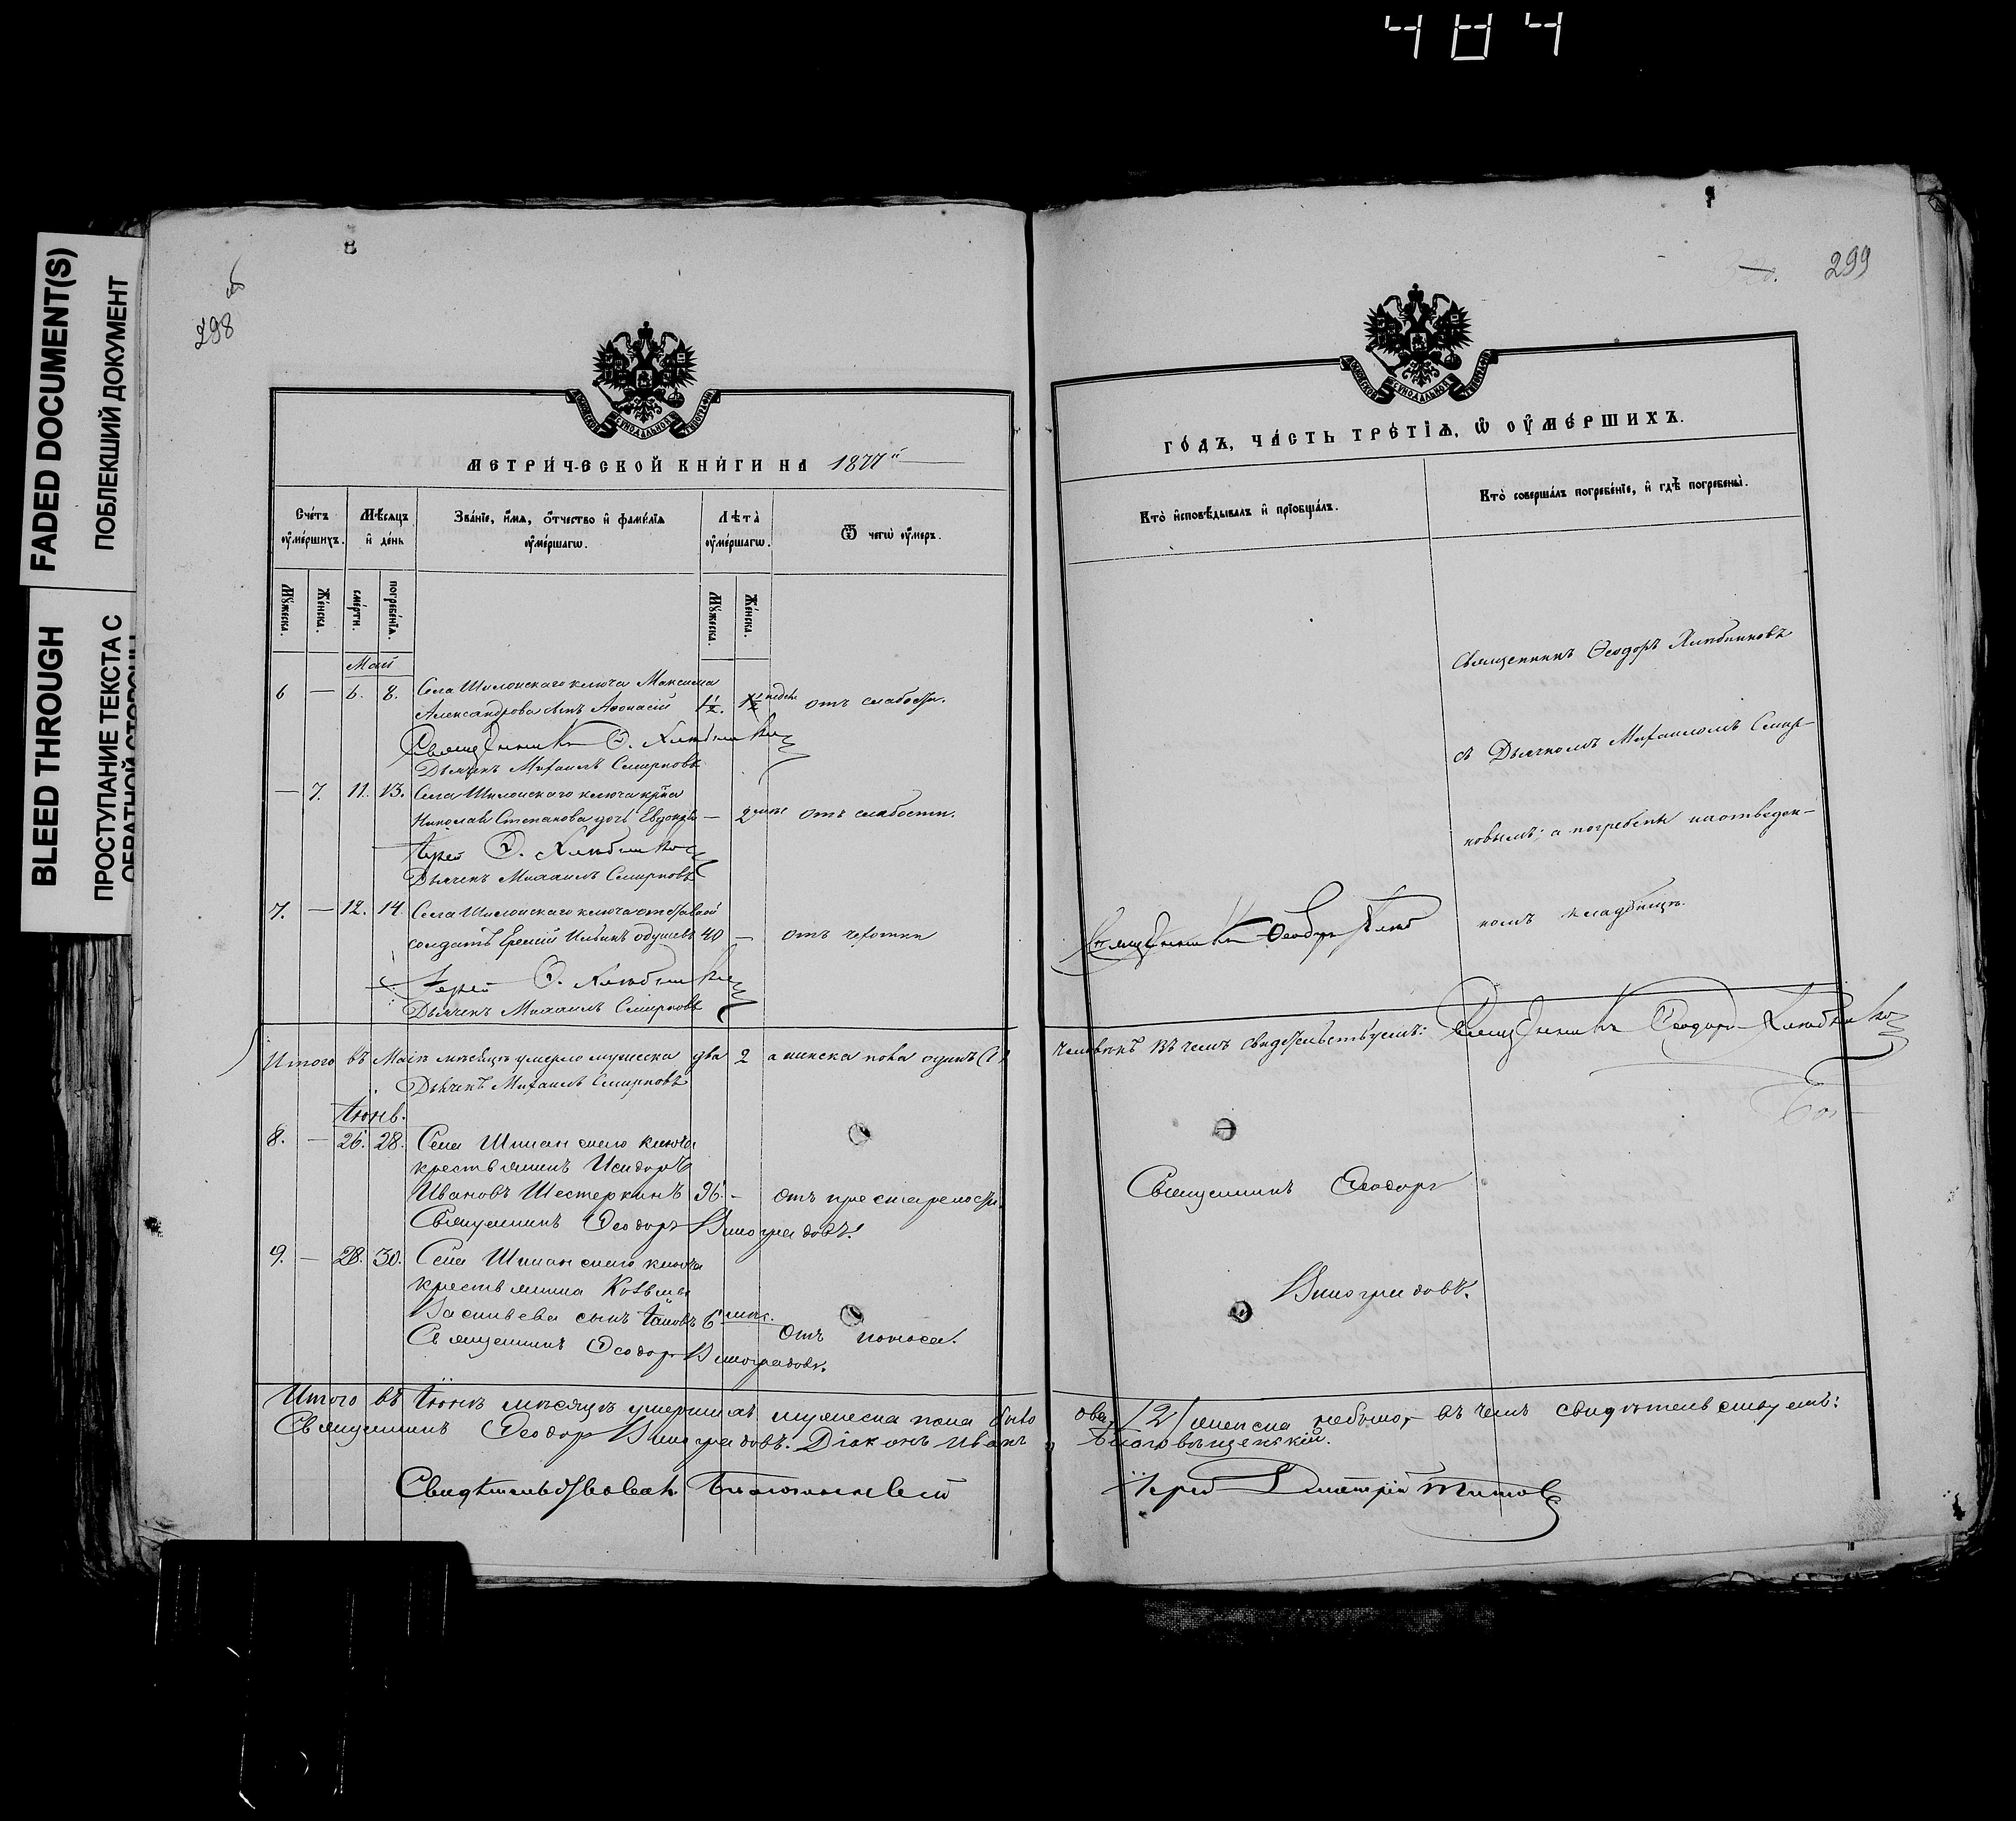 484
FADED DOCUMENT(S)
ПОБЛЕКШИЙ ДОКУМЕНТ
BLEED THROUGH
ПРОСТУПАНИЕ ТЕКСТА С
ОБРАТНОЙ СТОРОНЫ
298
МЕТРИЧЕСКОЙ КНИГИ НА 1877й
Счетъ оумершихъ.
Мѣсяцъ и день
Званіе, имя, отчество и фамилія оумершагѡ.
Лѣта оумершагѡ.
Ѿ чегѡ оумеръ.
Мужеска.
Женска.
смерти.
погребенія.
Мужеска.
Женска.
Май
6 — 6. 8. Села Шиловскаго ключа Максима
Александрова сынъ Аѳонасій 1½. недѣл отъ слабости.
Священникъ Ѳ. Хлѣбников
Дьячекъ Михаилъ Смирновъ
— 7. 11. 13. Села Шиловскаго ключа крна
Николая Степанова дочь Евдокія — 2 отъ слабости.
Іерей Ѳ. Хлѣбников
Дьячекъ Михаилъ Смирновъ
7. — 12. 14. Села Шиловскаго ключа отставной
солдатъ Еремій Ильинъ 40 — отъ чехотки
Іерей Ѳ. Хлѣбников
Дьячекъ Михаилъ Смирновъ
Итого въ Маѣ мѣсяцѣ умерло мужеска два 2 а женска пола одинъ (1)
Дьячекъ Михаилъ Смирновъ
Іюнь.
8. — 26. 28. Села ключа
крестьянинъ Исидоръ
Ивановъ Шестеркинъ 96. — Отъ престарелости.
Священникъ Ѳеодоръ Виноградовъ.
9. — 28. 30. Села ключа
крестьянина Козьмы
Васильева сынъ Іаковъ 6 мѣс. Отъ поноса.
Священникъ Ѳеодоръ Виноградовъ.
Итого въ Іюнѣ мѣсяцѣ умершихъ мужеска пола было
Священникъ Ѳеодоръ Виноградовъ. Діаконъ Иванъ
Свидѣтельствовалъ Благочинный
299
ГОДЪ, ЧАСТЬ ТРЕТІЯ, Ѡ ОУМЕРШИХЪ.
Кто исповѣдывалъ и пріобщалъ.
Кто совершалъ погребеніе, и гдѣ погребены.
Священникъ Ѳеодоръ Хлѣбниковъ
съ Дьячкомъ Михаиломъ Смир-
новымъ; а погребены на отведен-
номъ кладбищѣ.
Священникъ Ѳеодоръ Хлѣб
человѣкъ въ чемъ свидѣтельствуемъ: Священникъ Ѳеодоръ Хлѣбников
Священникъ Ѳеодоръ
Виноградовъ.
два /2/ женска небыло, въ чемъ свидѣтельствуемъ:
Благовѣщенскій.
Іерей Димитрій Титовъ